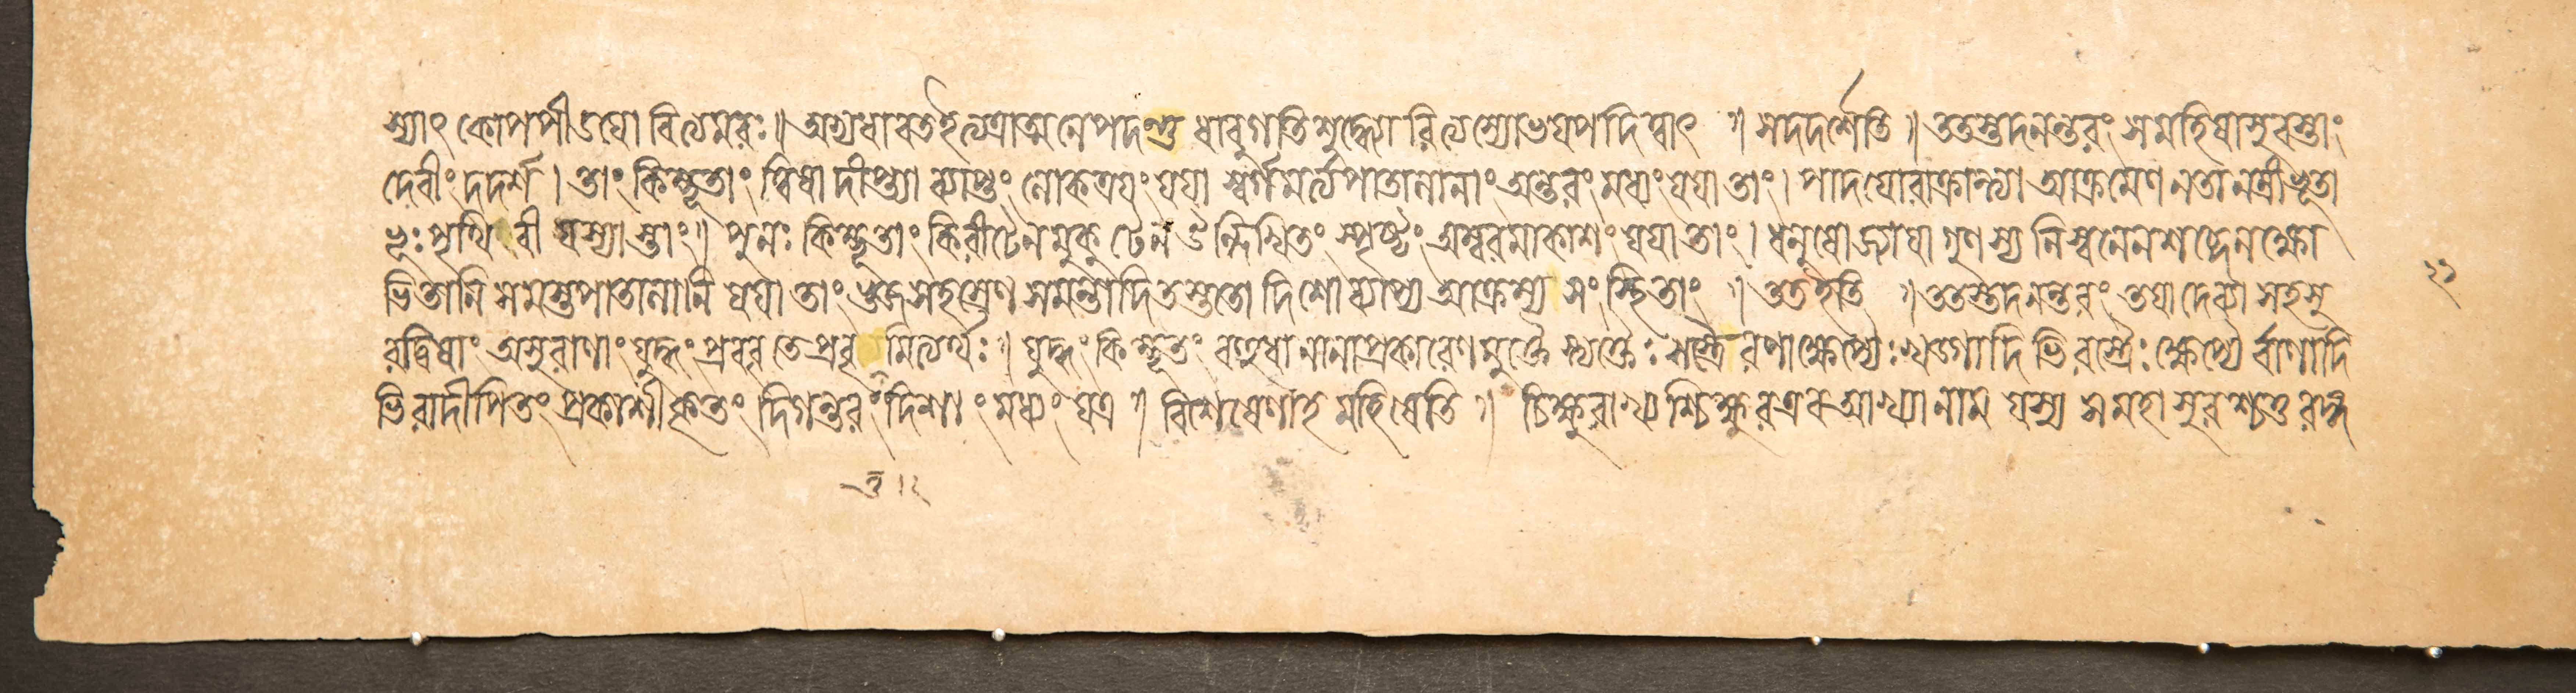 স্যাৎ কোপপীডয়ো বিত্যমরঃ॥ অভ্যধাবতইত্যত্রাত্মনেপদন্তু ধাবুগতিশুদ্ধ্যো রিত্যস্যোভয়পদিত্বাৎ ॥ সদদর্শেতি॥ ততস্তদনন্তরং সমহিষাসুরস্তাং
দেবীং দদর্শ। তাং কিম্ভূতাং ত্বিষা দীপ্ত্যা ব্যাপ্তং লোকত্রয়ং যয়া স্বর্গমর্ত্যপাতালানাং অন্তরং মধ্যং যয়া তাং। পাদয়োরাক্রান্ত্যা আক্রমেণ নতা নম্রীভূতা
ভূঃ পৃথিবী যস্যাস্তাং॥ পুনঃ কিম্ভূতাং কিরীটেন মুকুটেন উল্লিখিতং স্পৃষ্টং অম্বরমাকাশং যয়া তাং। ধনুষো জ্যায়া গুণস্য নিস্বনেন শব্দেন ক্ষো
ভিতানি সমস্তপাতালানি যয়া তাং ভুজসহস্রেণ সমন্তাদিতস্ততো দিশো ব্যাপ্য আক্রম্য সংস্থিতাং ॥ ততইতি ॥ ততস্তদনন্তরং তয়া দেব্যা সহ সু
রদ্বিষাং অসুরাণাং যুদ্ধং প্রববৃতে প্রবৃ মিত্যর্থঃ॥ যুদ্ধং কিম্ভূতং বহুধা নানাপ্রকারেণ মুক্তৈ স্ত্যক্তৈঃ শস্ত্রৈ রপ্যক্ষেপ্যৈঃ খড্গাদি ভিরস্ত্রৈঃ ক্ষেপ্যৈ র্বাণাদি
ভিরাদীপিতং প্রকাশীকৃতং দিগন্তরং দিশাং মধ্যং যত্র ॥ বিশেষেণাহ মহিষেতি ॥ চিক্ষুরাখ্য শ্চিক্ষুরএব আখ্যা নাম যস্য সমহাসুরশ্চতুরঙ্গ
২১
তু।২